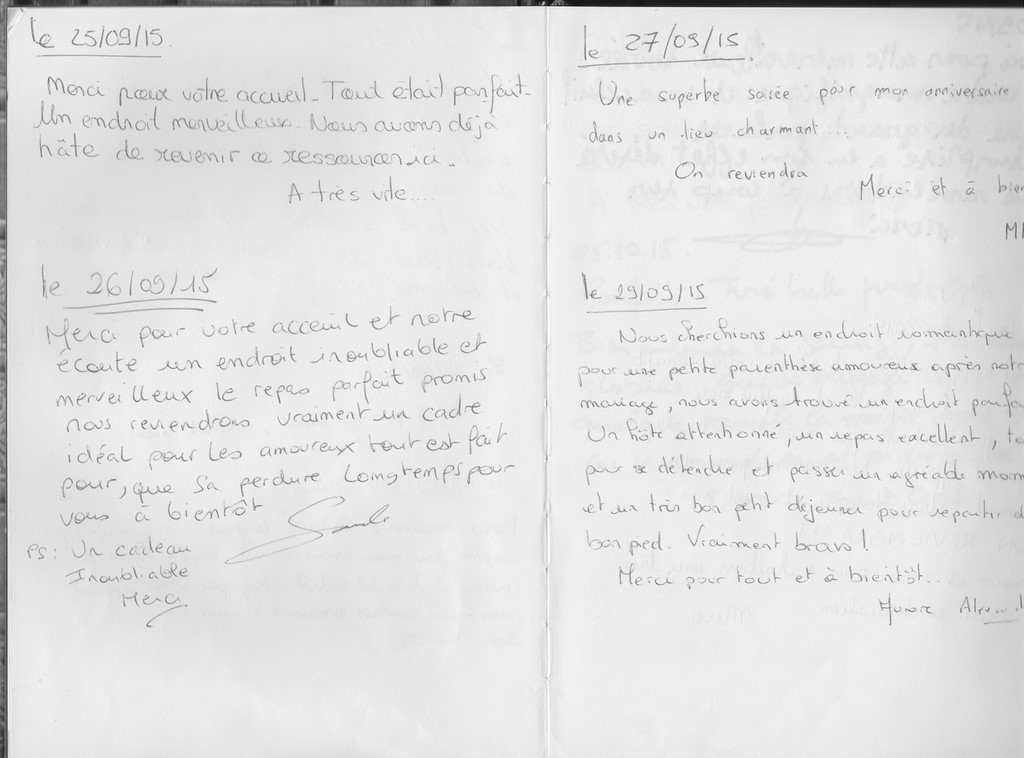 le 25/09/15.
Merci pour votre accueil. Tout était parfait.
Un endroit merveilleux. Nous avons déjà
hâte de revenir se ressourcer ici.
A très vite...
le 26/09/15
Merci pour votre acceuil et notre
écoute un endroit inoubliable et
merveilleux le repas parfait promis
nous reviendrons vraiment un cadre
idéal pour les amoureux tout est fait
pour, que sa perdure longtemps pour
vous à bientôt
PS: Un cadeau
Inoubliable
Merci
le 27/09/15
Une superbe soirée pour mon anniversaire
dans un lieu charmant...
On reviendra
Merci et à bien
le 29/09/15
Nous cherchions un endroit romantique
pour une petite parenthèse amoureux après not
mariage, nous avons trouvé un endroit parfa
Un hôte attentionné, un repas excellent, to
pour se détendre et passer un agréable mom
et un très bon petit déjeuner pour repartir d
bon pied. Vraiment bravo!
Merci pour tout et à bientôt.